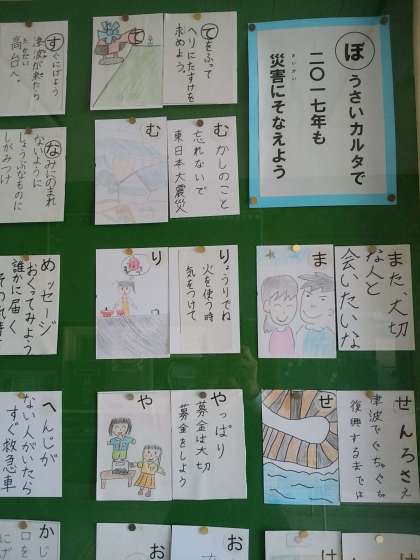 ぼうさいカルタで
二〇一七年も
災害にそなえよう
さいがい
て
てをふって
ヘリにたすけを
求めよう。
すぐにげよう
津波が来たら
高台へ。
む
むかしのこと
忘れないで
東日本大震災
なみにのまれ
ないように
じょうぶなものに
しがみつけ
ま
また、大切
な人と
会いたいな
り
りょうりでね
火を使う時
気をつけて
めッセージ
おくってみよう
誰かに届く
せ
せんろさえ
津波でぐちゃぐちゃ
復興するまでは
や
やっぱり
募金は大切
募金をしよう
へんじが
ない人がいたら
すぐ救急車
お
お
け
かじ
口を